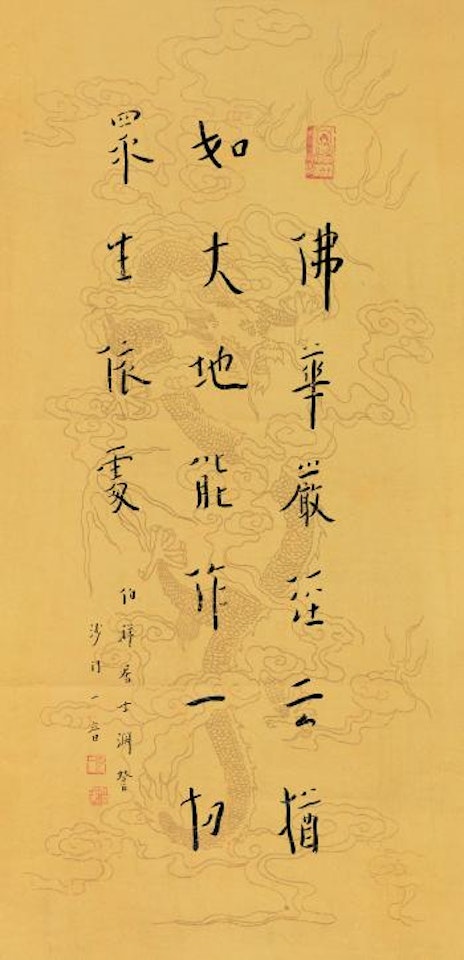 佛華嚴經云猶
如大地能作一切
眾生依處
伯祥居士淵詧
沙門一音